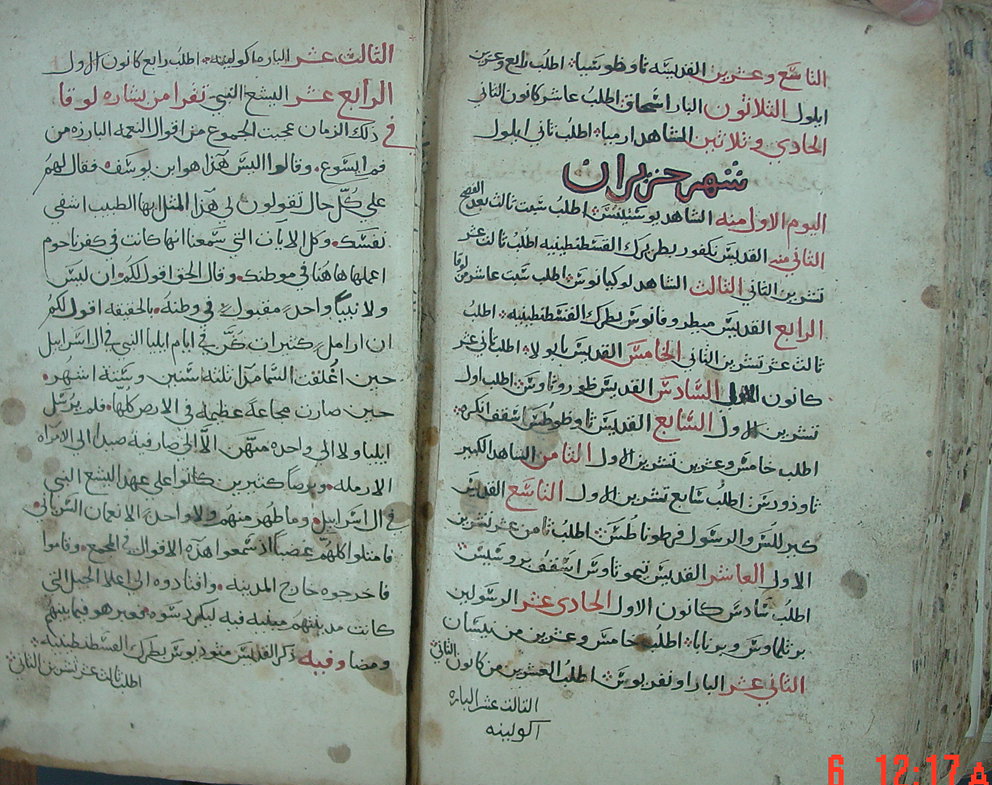 التاسع وعشرين القديسه تاوضوسيا اطلب رابع وعشرين
ايلول الثلاثون البار اسحاق اطلب عاشر كانون الثاني
الحادي وثلاثين الشاهد ارميا اطلب ثاني ايلول
شهر حزيران
اليوم الاول منه الشاهد يوستينس اطلب سبت ثالث بعد الفصح
الثاني منه القديس نكفور بطريرك القسطنطينيه اطلب ثالث عشر
تشرين الثاني الثالث الشاهد لوكيانوس اطلب سبت عاشر من لوقا
الرابع القديس ميطروفانوس بطريرك القسطنطينيه اطلب
ثالث عشر تشرين الثاني الخامس القديس ابولا اطلب ثاني عشر
كانون الاول السادس القديس ظوروثاوس اطلب اول
تشرين الاول السابع القديس تاوظوطس اسقف انكره
اطلب خامس وعشرين تشرين الاول الثامن الشاهد الكبير
تاودورس اطلب سابع تشرين الاول التاسع القديس
كيرللس والرسول فرطوناطس اطلب ثامن عشر تشرين
الاول العاشر القديس تيموتاوس اسقف بروسيس
اطلب سادس كانون الاول الحادي عشر الرسولين
برتلماوس وبرنابا اطلب خامس وعشرين من نيسان
الثاني عشر البار اونفريوس اطلب العشرين من كانون الثاني
الثالث عشر الباره
اكولينه
الثالث عشر الباره اكولينه اطلب رابع كانون الاول
الرابع عشر اليشع النبي نقرا من بشاره لوقا
في ذلك الزمان عجبت الجموع من اقوال النعمه البارزه من
فم ايسوع وقالوا اليس هذا هو ابن يوسف فقال لهم
على كل حال تقولون لي هذا المثل ايها الطبيب اشفي
نفسك وكل الايات التي سمعنا انها كانت في كفرناحوم
اعملها هاهنا في موطنك وقال الحق اقول لكم ان ليس
ولا نبيا واحد مقبول في وطنه بالحقيقه اقول لكم
ان ارامل كثيرات كن في ايام ايليا النبي في ال اسراييل
حين اغلقت السما مدا ثلثه سنين وسته اشهر
حين صارت مجاعه عظيمه في الارض كلها فلم يرسل
ايليا ولا الى واحده منهن الا الى صارفيه صيدا الى الامراه
الارمله وبرصا كثيرين كانوا على عهد اليشع النبي
في ال اسراييل وما طهر منهم ولا واحد الا نعمان السرياني
فامتلوا كلهم غضبا اذ سمعوا هذه الاقوال في المجمع وقاموا
فاخرجوه خارج المدينه واقتادوه الى اعلا الجبل التي
كانت مدينتهم مبنيه فيه ليكردسوه فعبر هو فيما بينهم
ومضا وفيه ذكر القديس متوديوس بطريرك القسطنطينيه
اطلب ثالث عشر تشرين الثاني
6 12:17